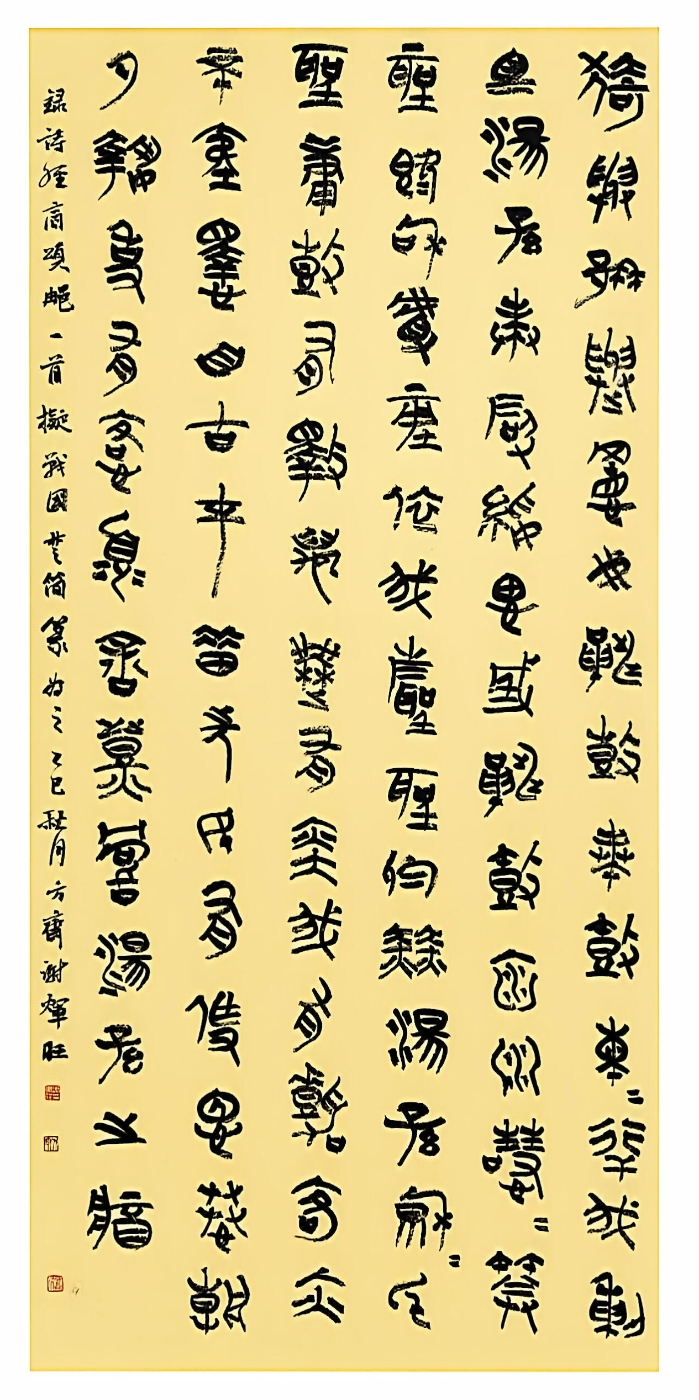 猗與那與置我鞉鼓奏鼓簡=衎我烈
祖湯孫奏假綏思成鞉鼓淵淵嘒=管
聲既和且平依我磬聲於赫湯孫穆=厥
聲庸鼓有斁萬舞有奕我有嘉客亦
不夷懌自古在昔先民有作溫恭朝
夕執事有恪顧予烝嘗湯孫之將
錄詩經商頌一首擬戰國楚簡篆為之乙巳秋月方齋謝輝旺